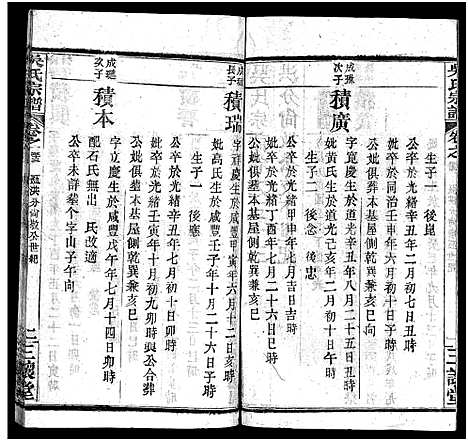 吳氏宗譜
生子一 後崑
公卒於同治壬申年六月初二日寅時
公妣俱葬本基屋側乾巽兼亥巳向
成璉次子
積廣
字寬慶生於道光辛丑年八月二十五日亥時
妣黃氏生於道光己亥年二月初十日午時
生子二 後念 後忠
公卒於光緒甲申年七月吉日吉時
妣卒於光緒丁酉年七月二十六日巳時
公妣俱墓本基屋側乾巽兼亥巳
三讓堂
吳氏宗譜
卷之
洪分向敬公世紀
三讓堂
成璉長子
積瑞
字祥慶生於咸豐甲寅年六月十二日亥時
妣高氏生於咸豐壬子年十月二十六日子時
生子一 後應
公卒於光緒辛丑年七月初十日卯時
妣卒於光緒壬寅年十月初九卯時與公合葬
公妣俱墓本基屋側乾巽兼亥巳
積本
字立慶生於咸豐戊午年七月十四日卯時
配石氏無出 氏改適
公卒未詳墓个字山子午向